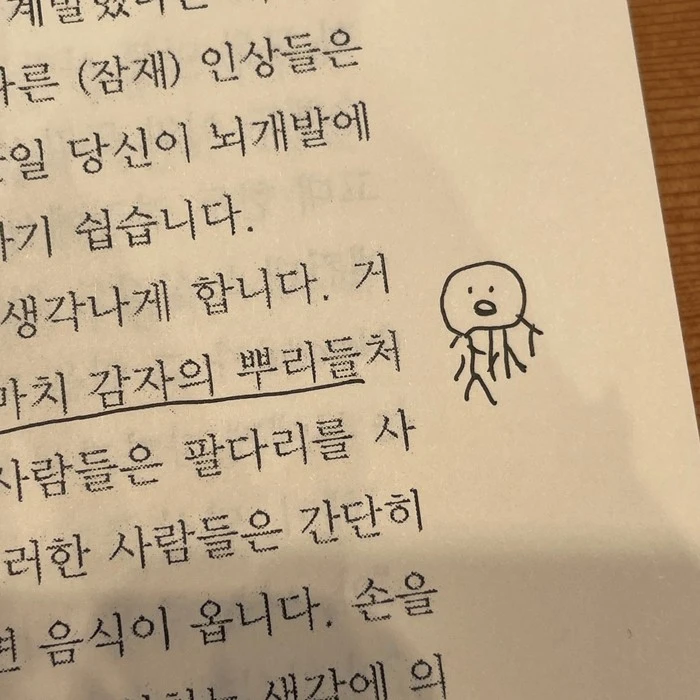 른 (잠재) 인상들은
일 당신이 뇌개발에
기 쉽습니다.
생각나게 합니다. 거
마치 감자의 뿌리들처
사람들은 팔다리를 사
러한 사람들은 간단히
음식이 옵니다. 손을
생각에 의